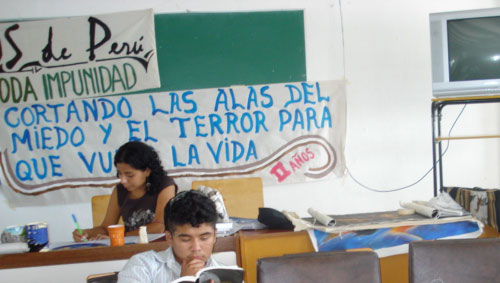 S de Perú
ODA IMPUNIDAD
CORTANDO LAS ALAS DEL
MIEDO Y EL TERROR PARA
QUE VU LA VIDA
II AÑOS